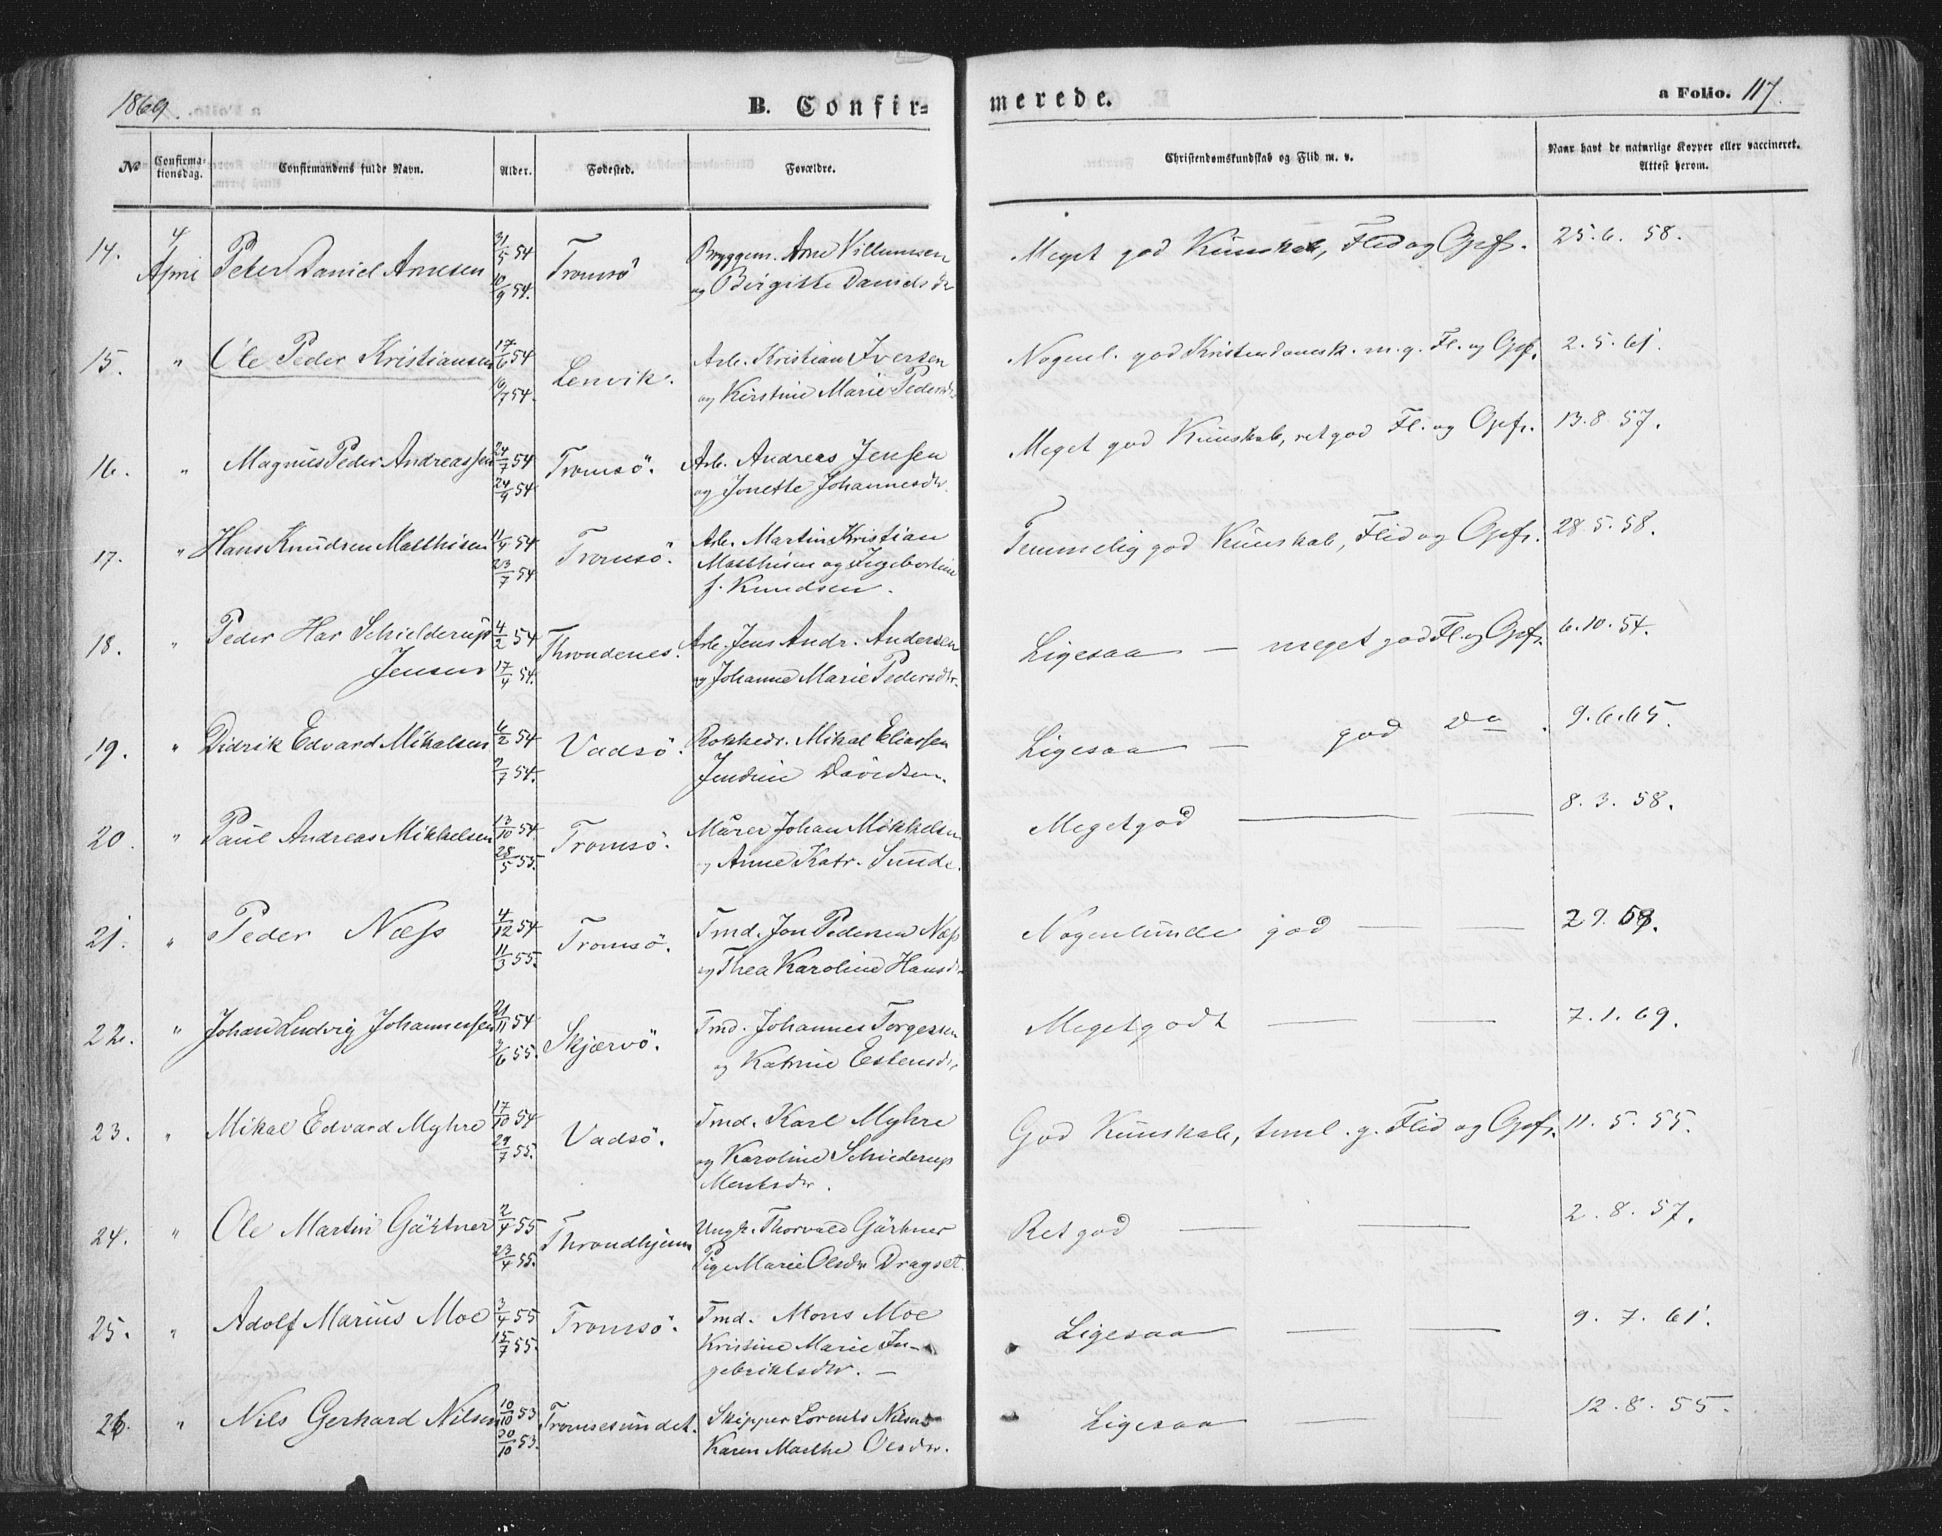 1869.
B. Confir=
merede.
a Folio. 117.
No
Confirma-
tionsdag.
Confirmandens fulde Navn.
Alder.
Fødested.
Forældre.
Christendomskundskab og Flid m. v.
Naar havt de naturlige Kopper eller vaccineret.
Attest herom.
14. 4 April Peter Daniel Arnesen 31/5 54 10/9 54. Tromsö Bryggem. Arne Villumsen
og Birgitte Daniels dr
Meget god Kunskab, Flid og Opf. 25.6. 58.
15. " Ole Peder Kristiansen 17/6 54 16/7 54. Lenvik. Arb. Kristian Iversen
og Kirstine Marie Pedersdr
Nogenl. god Kristendomsk. m. g. Fl. og Opf. 2. 5. 61.
16. " Magnus Peder Andreassen 24/7 54 24/9 54 Tromsö. Arb. Andreas Jensen
og Jonette Johannesdr.
Meget god Kunskab, ret god Fl. og Opf. 13.8. 57.
17. " Hans Knudsen Matthisen 11/4 54 23/7 54 Tromsö. Arb. Martin Kristian
Matthisen og Ingebortine
f. Knudsen.
Temmelig god Kunskab, Flid og Opf. 28.5.58.
18. " Peder Har Schielderup
Jensen 4/2 54 17/4 54. Throndenes. Arb. Jens Andr. Andersen
og Johanne Marie Pedersdr.
Ligesaa — meget god Fl. og Opf. 6.10.54.
19. " Didrik Edvard Mikalsen 6/2 54 2/7 54. Vadsö. Rokkedr. Mikal Eliassen
Jendine Davidsen.
Ligesaa — god Do. 9.6.65.
20. " Paul Andreas Mikkelsen 13/10 54. 28/5 55. Tromsö. Murer Johan Mikkelsen
og Anne Katr. Sunde.
Megetgod — — 8. 3. 58.
21. " Peder Næss 4/12 54 11/3 55. Tromsö. Tmd. Jon Pedersen Næss
og Thea Karoline Hansdr
Nogenlunde god — —
22. " Johan Ludvig Johannessen 21/11 54 3/6 55. Skjærvö. Tmd. Johannes Torgersen
og Katrine Estensdr.
Megetgodt — — 7.1.69.
23. " Mikal Edvard Myhre 17/10 54 29/7 55. Vadsö. Tmd. Karl Myhre
og Karoline Schiederup
Mentsdr.
God Kunskab, teml. g. Flid og Opf. 11. 5. 55.
24. " Ole Martin Gärtner 2/4 55 23/4 55. Throndhjem Ungk. Thorvald Gärtner
Pige Marie Olsdr Dragset.
Ret god — — 2.8.57.
25. " Adolf Marius Moe 3/4 55 15/7 55. Tromsö. Tmd. Mons Moe
Kristine Marie In-
gebriktsdr. —
Ligesaa — — 9. 7. 61.
26. " Nils Gerhard Nilsen 10/10 53 30/10 53. Tromsesundet. Skipper Lorents Nilsen
Karen Marthe Olsdr.
Ligesaa — — 12.8.55.